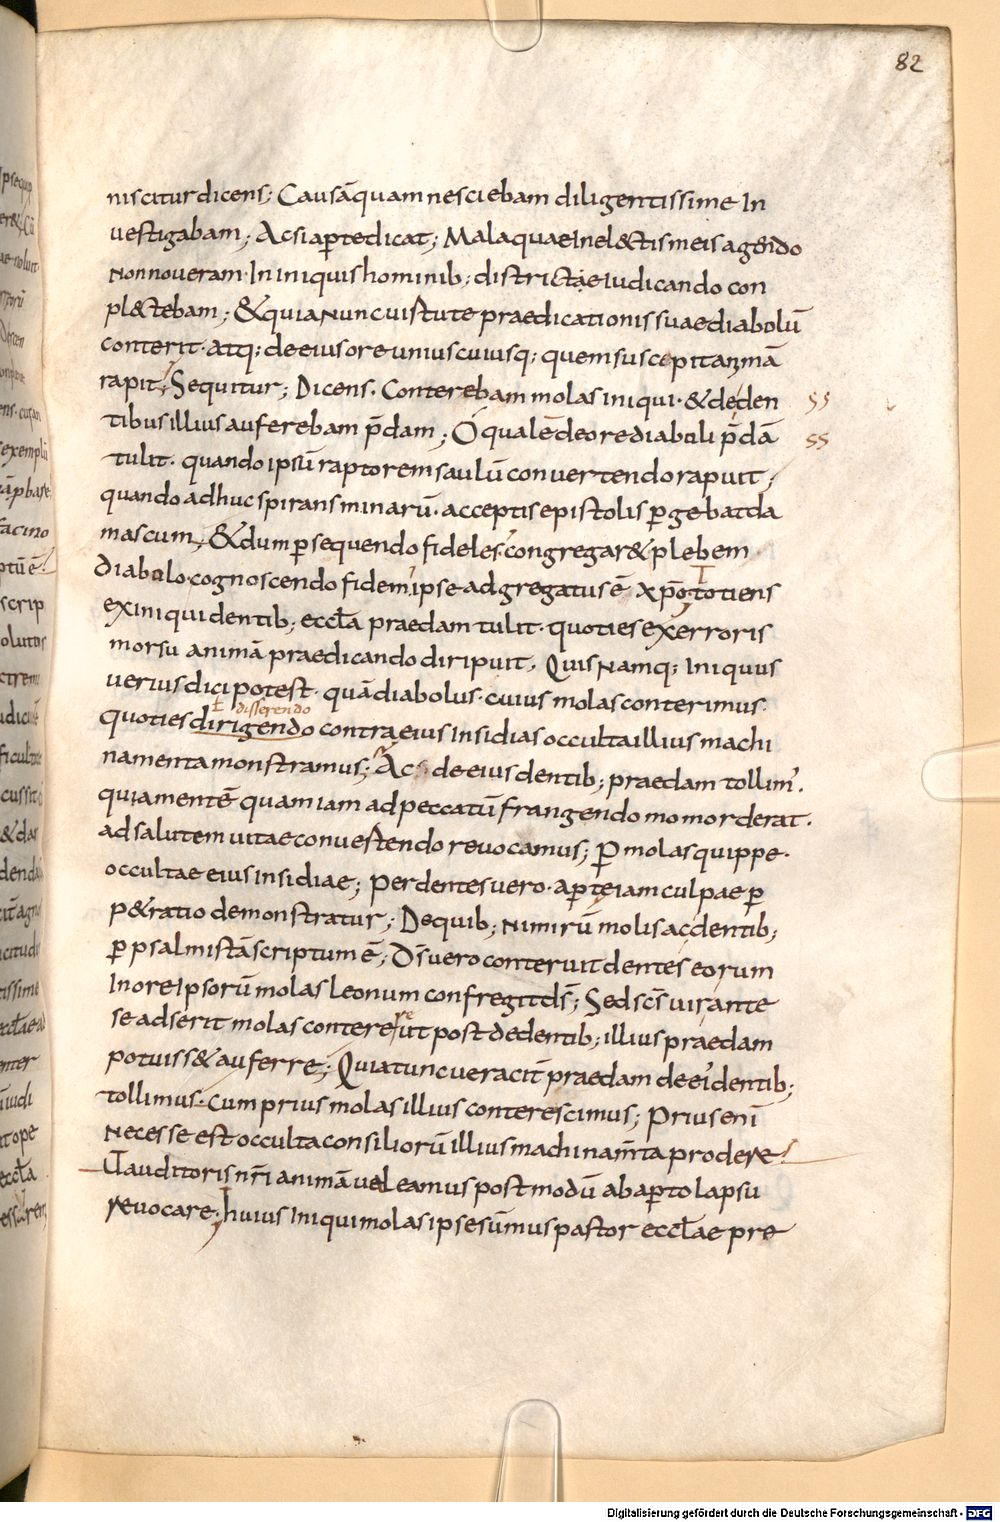 82
niscitur dicens; Causā quam nesciebam diligentissime In
uestigabam; Ac si aꝑte dicat; Mala quae In electis meis agendo
Non noueram· In iniquis hominib; districtae iudicando con
pl&tebam; & quia Nunc uirtute praedicationis suae diabolū
conterit· atq; de eius ore unius cuiusq; quem suscepit animā
rapit; Sequitur; Dicens· Conterebam molas iniqui· & de den
tibus illius auferebam p̄dam; O quale ē de ore diaboli p̄dā
tulit· quando ipsū raptorem saulū conuertendo rapuit;
quando adhuc spirans minarū· acceptis epistolis ꝑgebat da
mascum; & dum ꝑsequendo fideles congregar& plebem
diabolo· cognoscendo fidem ipse adgregatus ē xp̄o· totiens
ex iniqui dentib; eccl̄a praedam tulit· quoties ex erroris
morsu animā praedicando diripuit· Quis Namq; Iniquus
uerius dici potest· quā diabolus· cuius molas conterimus·
ł disserendo
quoties dirigendo contra eius Insidias occulta illius machi
namenta monstramus; Ac de eius dentib; praedam tollim'·
quia mentē quam iam ad peccatū frangendo momorderat·
ad salutem uitae conuertendo reuocamus; Ꝑ molas quippe·
occultae eius insidiae; Per dentes uero· aꝑte iam culpae ꝑ
p&ratio demonstratur; De quib; Nimirū molis ac dentib;
ꝑ psalmistā scriptum ē; Ds̄ uero conteruit dentes eorum
In ore Ipsorū molas leonum confregit dn̄s; Sed scs̄ uir ante
se adserit molas conterere ut post de dentib; illius praedam
potuiss& auferre; Quia tunc ueracit̄ praedam de ei' dentib;
tollimus· cum prius molas illius conterescimus; Prius enī
Necesse est occulta consiliorū illius machinam̄ta prodere
Ut auditoris nr̄i animā ualeamus postmodū ab aꝑto lapsu
reuocare; huius Iniqui molas ipse sūmus pastor eccl̄ae pre
ss
ss
Digitalisierung gefördert durch die Deutsche Forschungsgemeinschaft - DFG